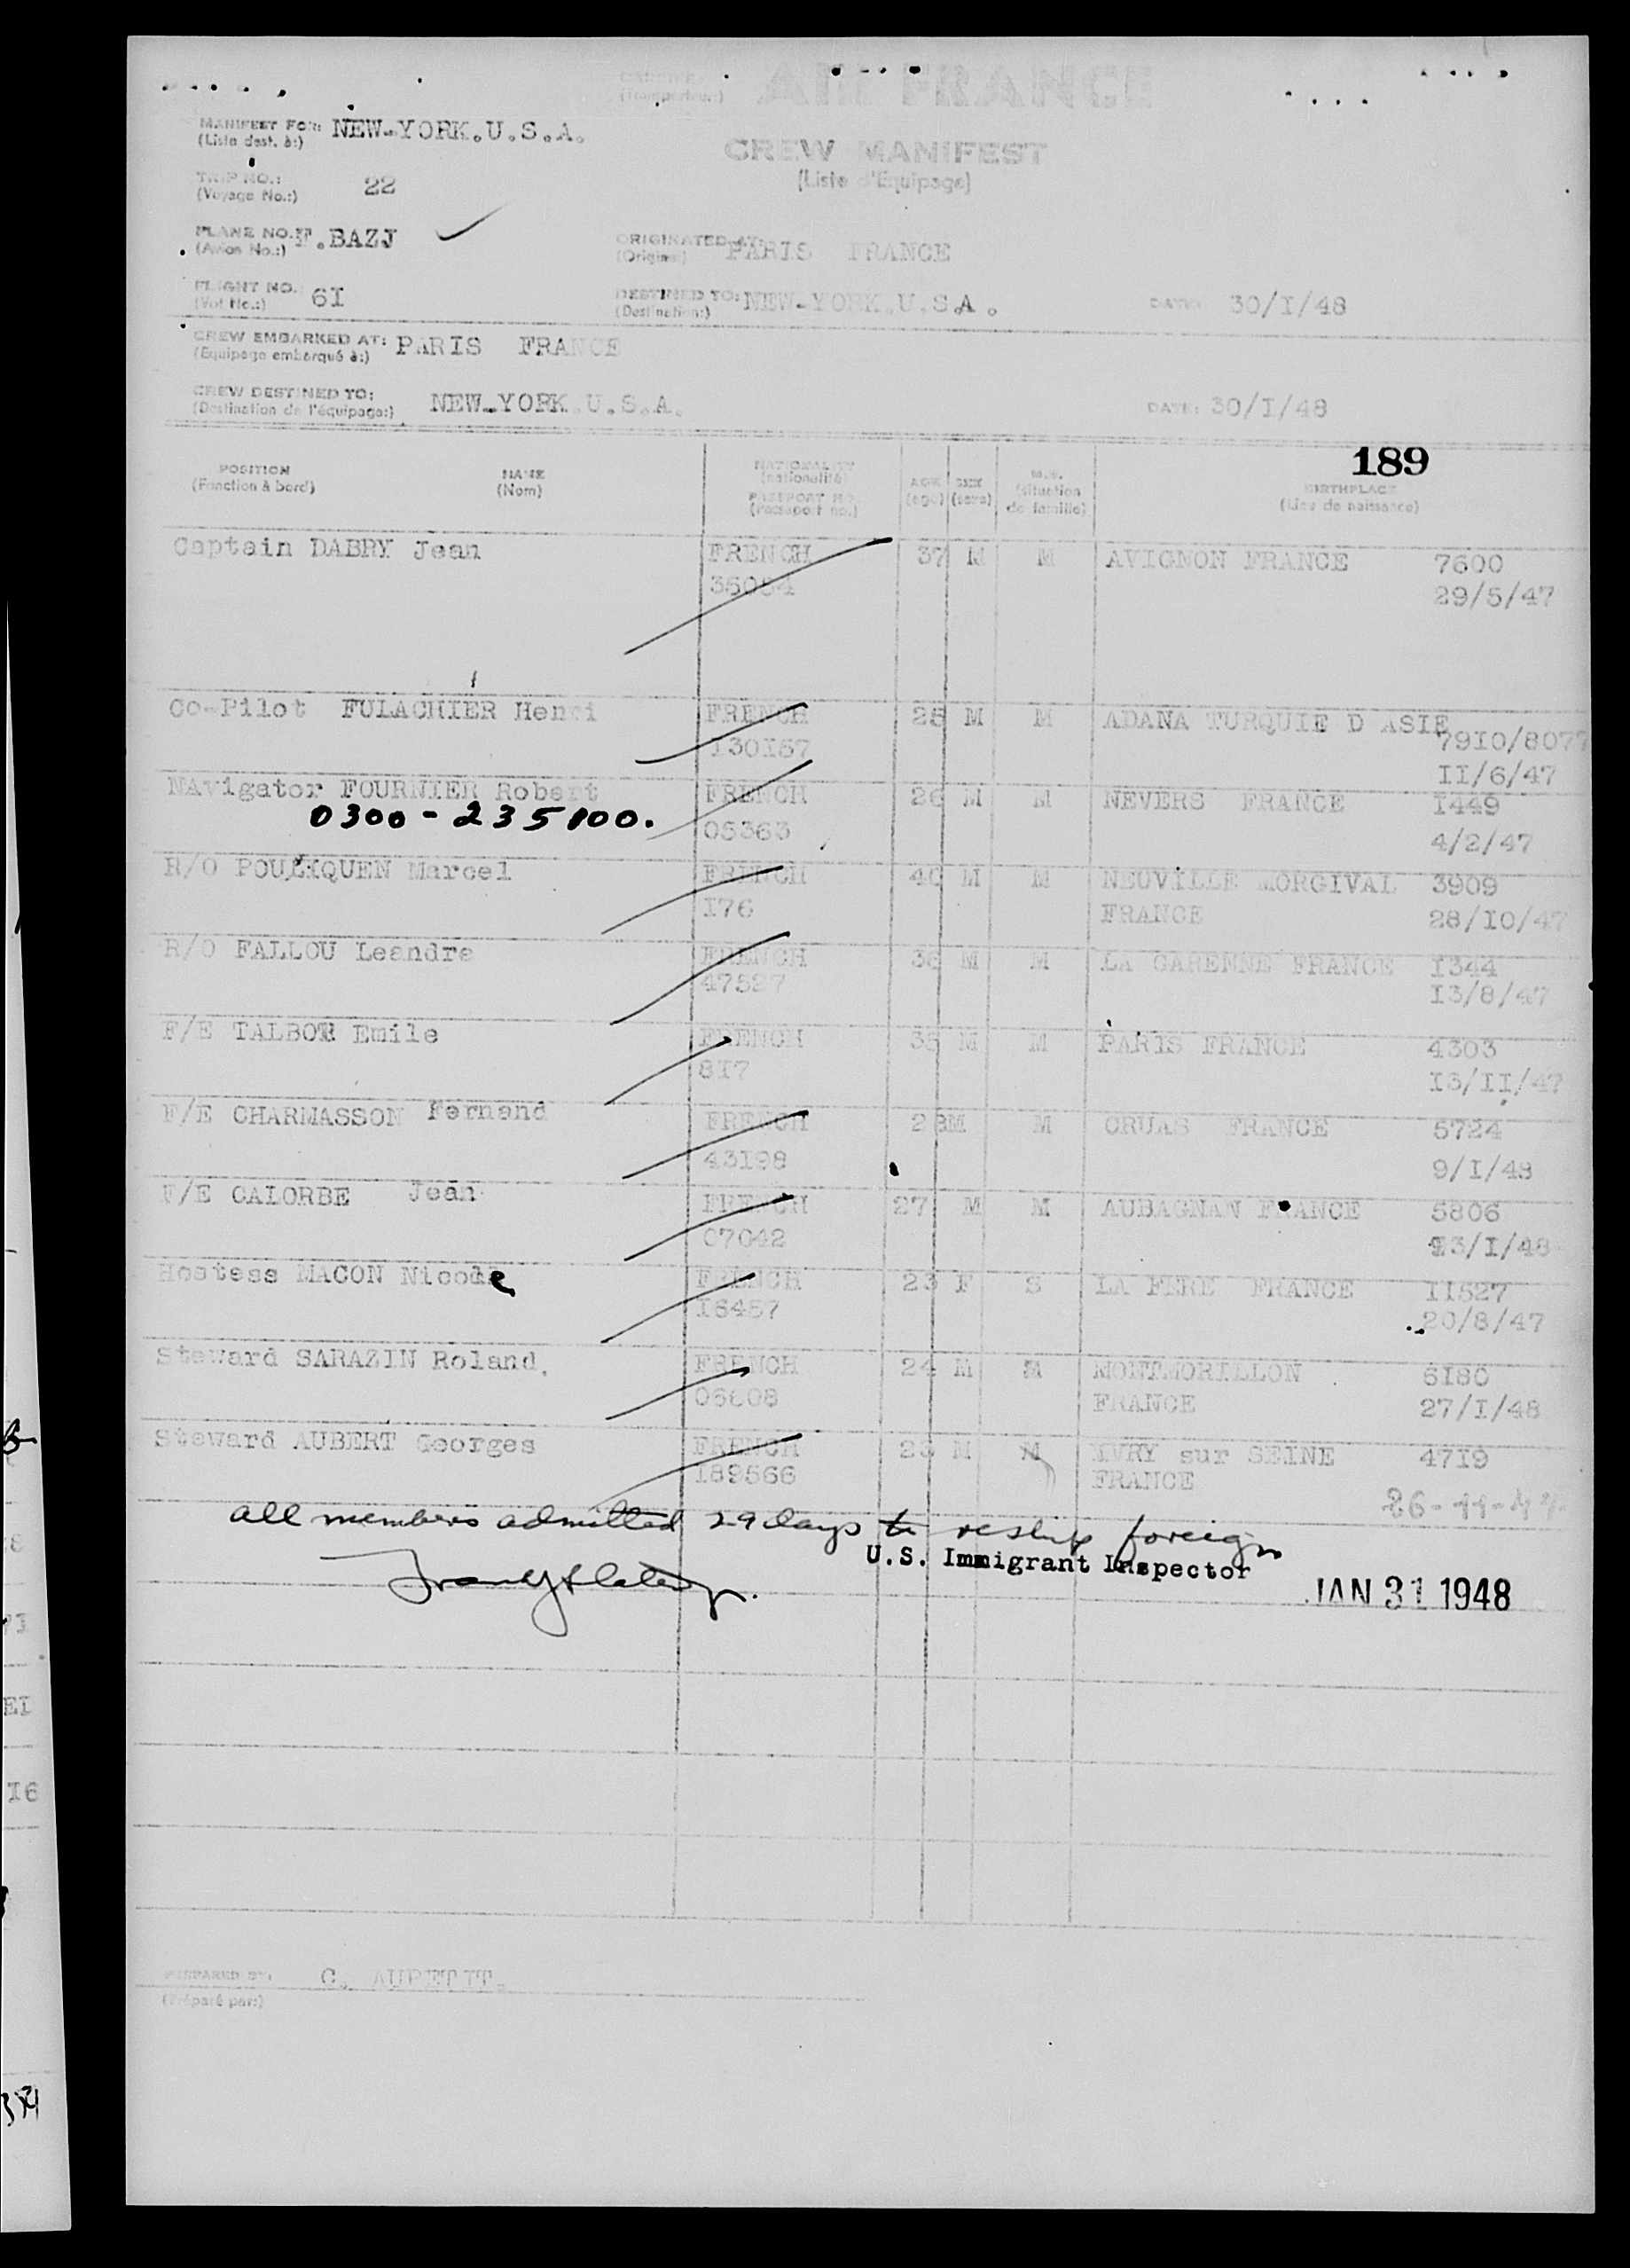 CARRIER: AIR FRANCE
(Transporteur:)
MANIFEST FOR: NEW-YORK.U.S.A.
(Liste dest. à:)
CREW MANIFEST
(Liste d'Equipage)
TRIP NO.: 22
(Voyage No.:)
PLANE NO. F.BAZJ
(Avion No.:)
ORIGINATED AT: PARIS FRANCE
(Origine:)
FLIGHT NO. 6I
(Vol No.:)
DESTINED TO: NEW-YORK.U.S.A.
(Destination:)
DATE: 30/I/48
CREW EMBARKED AT: PARIS FRANCE
(Equipage embarqué à:)
CREW DESTINED TO: NEW-YORK.U.S.A.
(Destination de l'équipage:)
DATE: 30/I/48
189
POSITION NAME NATIONALITY AGE SEX M.S. BIRTHPLACE
(Fonction à bord) (Nom) (nationalité) (age) (sexe) (situation de famille) (Lieu de naissance)
PASSPORT NO.
(Passeport no.)
Captain DABRY Jean FRENCH 37 M M AVIGNON FRANCE 7600
35054 29/5/47
Co-Pilot FULACHIER Henri FRENCH 25 M M ADANA TURQUIE D ASIE
I30I57 79I0/8077
II/6/47
NAvigator FOURNIER Robert FRENCH 26 M M NEVERS FRANCE I449
0300-235100. 05363 4/2/47
R/O POULIQUEN Marcel FRENCH 40 M M NEUVILLE MORGIVAL 3909
I76 FRANCE 28/I0/47
R/O FALLOU Leandre FRENCH 36 M M LA GARENNE FRANCE I344
47527 I3/8/47
F/E TALBOT Emile FRENCH 35 M M PARIS FRANCE 4303
8I7 I3/II/47
F/E CHARMASSON Fernand FRENCH 28 M M CRUAS FRANCE 5724
43I98 9/I/48
F/E CALORBE Jean FRENCH 27 M M AUBAGNAN FRANCE 5806
07042 23/I/48
Hostess MACON Nicole FRENCH 23 F S LA FERE FRANCE II527
I6457 20/8/47
Steward SARAZIN Roland. FRENCH 24 M M MONTMORILLON 6I80
06608 FRANCE 27/I/48
Steward AUBERT Georges FRENCH 23 M M YVRY sur SEINE 47I9
I89566 FRANCE 26-11-47
all members admitted 29 days to reship foreign
U.S. Immigrant Inspector
JAN 31 1948
PREPARED BY: C. AUPETIT.
(Préparé par:)